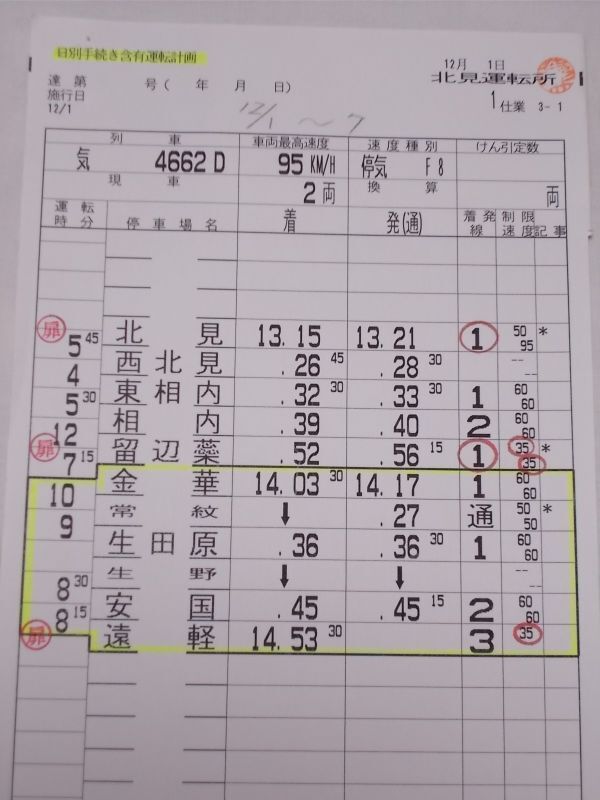 日別手続き含有運転計画
12月 1日
北見運転所
達 第 号( 年 月 日)
施行日
12/1
12/1 ～ 7
1 仕業 3-1
列 車 車両最高速度 速度種別 けん引定数
気 4662D 95 KM/H 停気 F8
現 車 換 算
2両 両
運転時分 停車場名 着 発(通) 着発線 制限速度 記事
扉 北見 13.15 13.21 1 50 95 *
5 45
西北見 .26 45 .28 30 -- --
4
東相内 .32 30 .33 30 1 60 60
5 30
相内 .39 .40 2 60 60
12
扉 留辺蘂 .52 .56 15 1 35 35 *
7 15
金華 14.03 30 14.17 1 60 60
10
常紋 ↓ .27 通 50 50 *
9
生田原 .36 .36 30 1 60 60
生野 ↓ ↓ -- --
8 30
安国 .45 .45 15 2 60 60
8 15
扉 遠軽 14.53 30 3 35